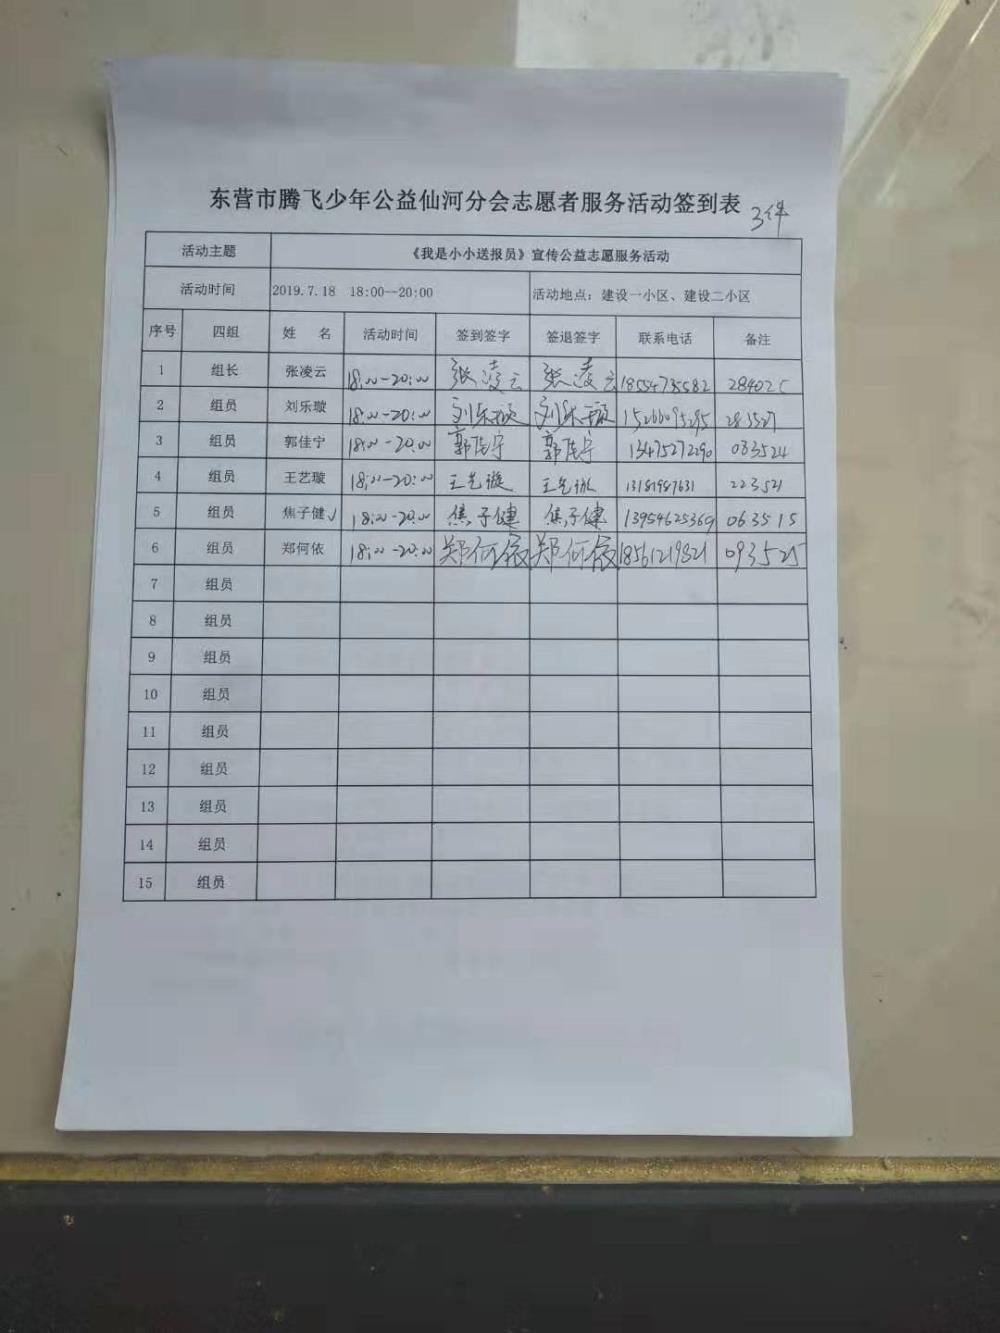 东营市腾飞少年公益仙河分会志愿者服务活动签到表 3件
活动主题 《我是小小送报员》宣传公益志愿服务活动
活动时间 2019.7.18 18:00--20:00 活动地点：建设一小区、建设二小区
序号 四组 姓 名 活动时间 签到签字 签退签字 联系电话 备注
1 组长 张凌云 18:00-20:00 张凌云 张凌云 18554735582 284025
2 组员 刘乐璇 18:00-20:00 刘乐璇 刘乐璇 15266095295 283527
3 组员 郭佳宁 18:00-20:00 郭佳宁 郭佳宁 13475272290 083524
4 组员 王艺璇 18:00-20:00 王艺璇 王艺璇 13181987631 223521
5 组员 焦子健√ 18:00-20:00 焦子健 焦子健 13954625369 063515
6 组员 郑何依 18:00-20:00 郑何依 郑何依 18561219821 093525
7 组员
8 组员
9 组员
10 组员
11 组员
12 组员
13 组员
14 组员
15 组员